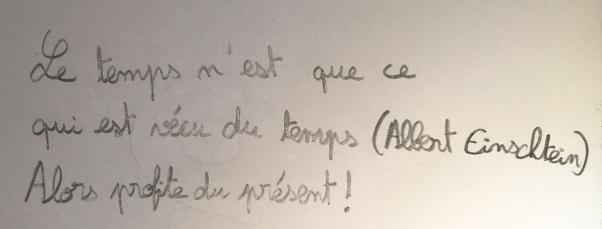 Le temps n'est que ce
qui est vécu du temps (Albert Einschtein)
Alors profite du présent !